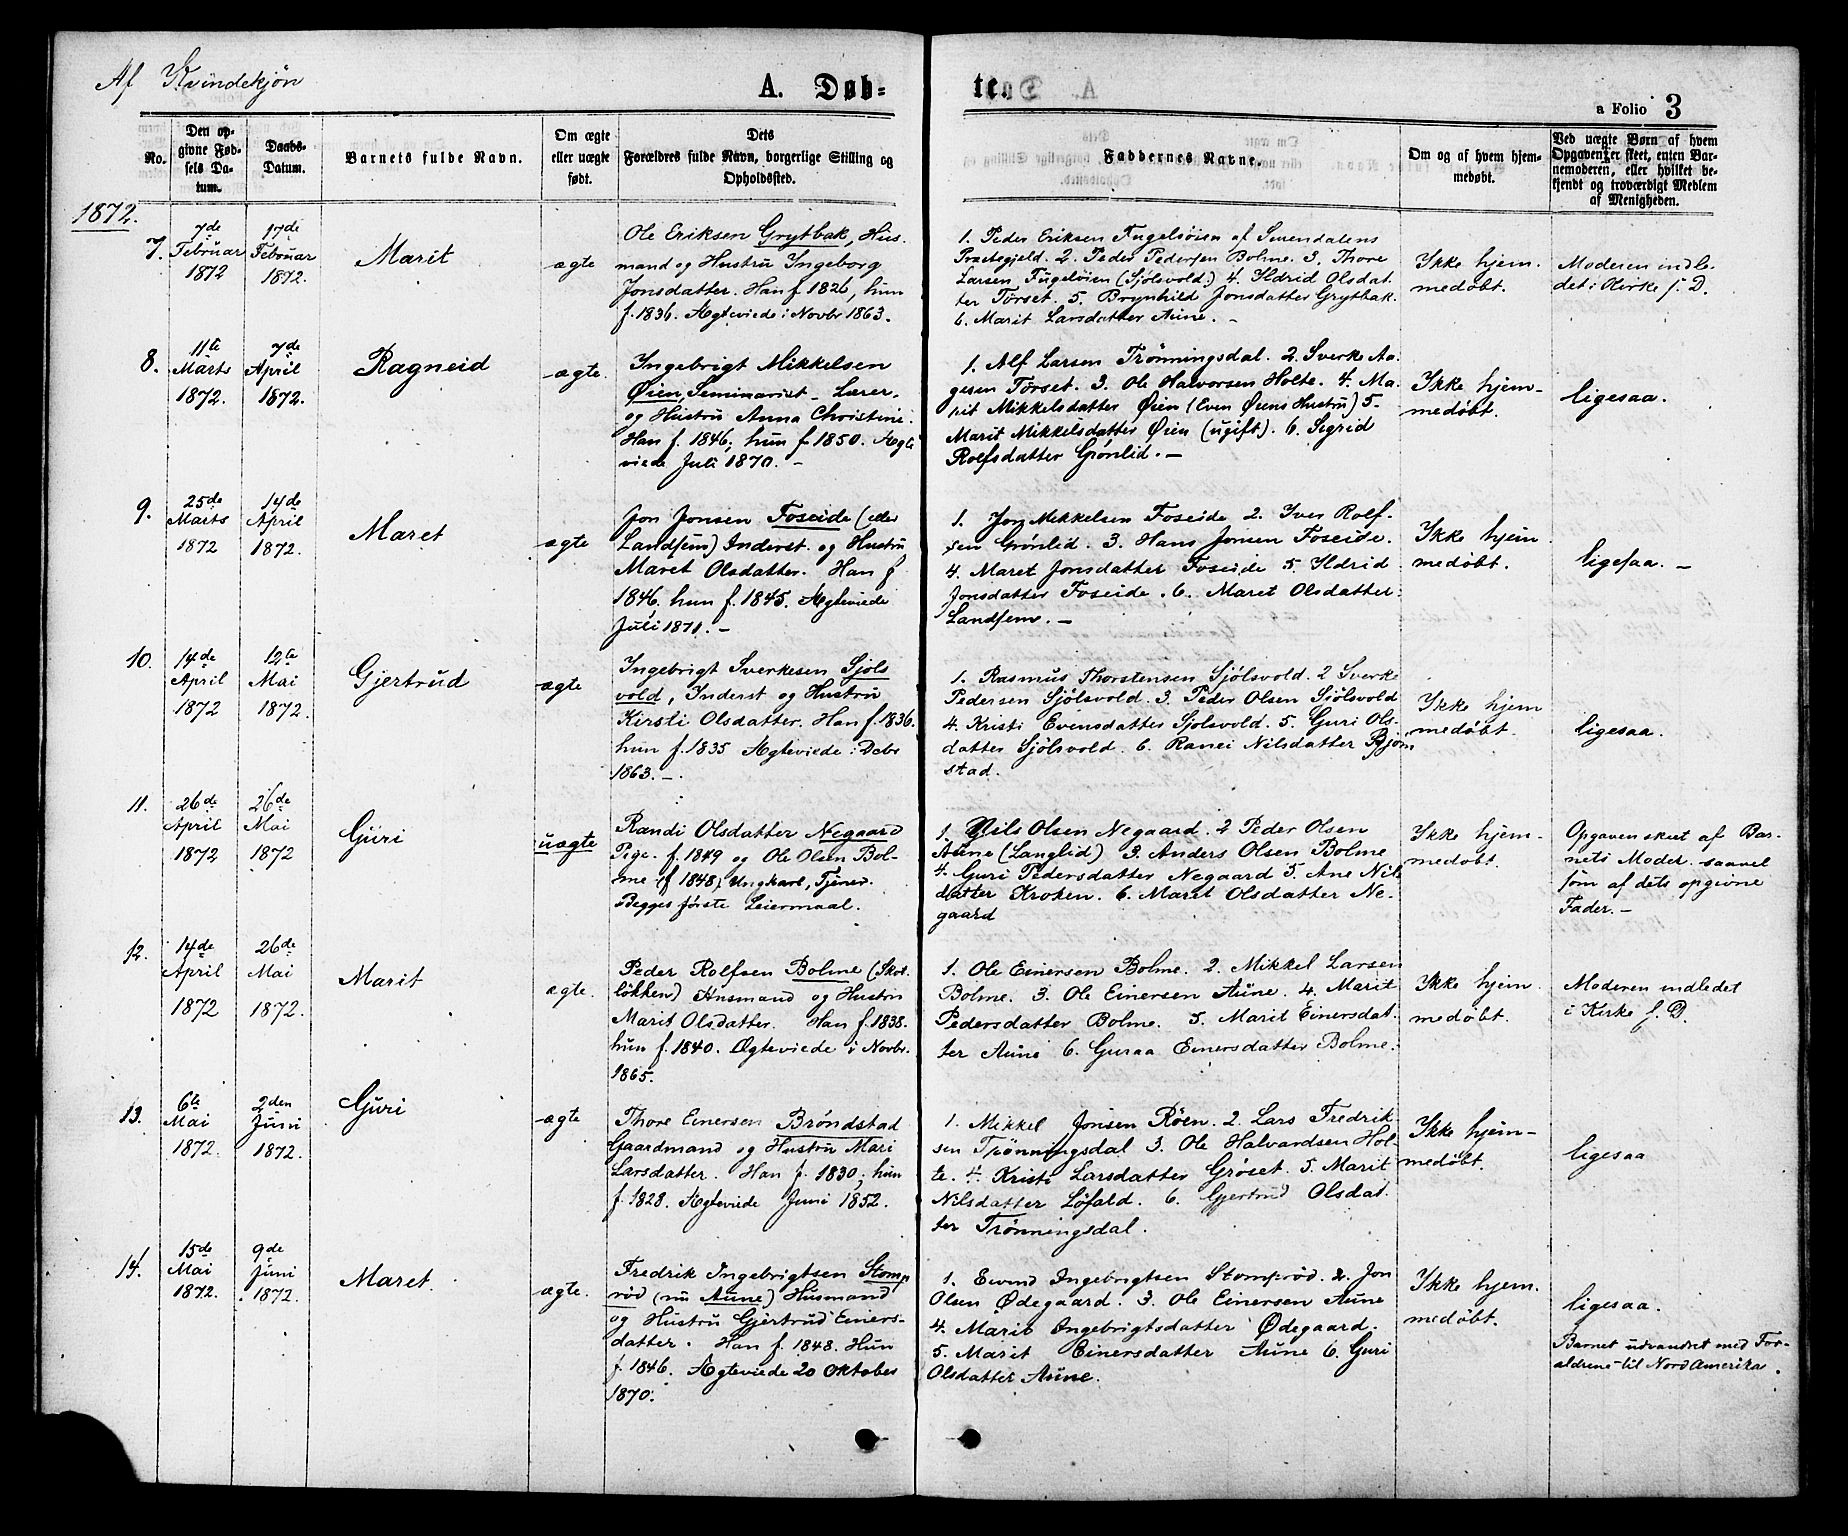 Af Kvindekjøn
A. Døb=
te.
a Folio 3
No.
Den op-
givne Fød-
sels Da-
tum.
Daabs-
Datum.
Barnets fulde Navn.
Om ægte
eller uægte
født.
Dets
Forældres fulde Navn, borgerlige Stilling og
Opholdssted.
Faddernes Navne.
Om og af hvem hjem-
medøbt.
Ved uægte Børn af hvem
Opgaven er skeet, enten Bar-
nemoderen, eller hvilket be-
kjendt og troværdigt Medlem
af Menigheden.
1872.
7.
7de
Februar
1872
17de
Februar
1872.
Marit
ægte
Ole Eriksen Grytbak, Hus-
mand og Hustru Ingeborg
Jonsdatter. Han f. 1826, hun
f. 1836. Ægteviede i Novbr 1863.
1. Peder Eriksen Fugelsöien af Surendalens
Præstegjeld. 2. Peder Pedersen Bolme. 3. Thore
Larsen Fugelöien (Sjölsvold.) 4. Ildrid Olsdat-
ter Törset. 5. Brynhild Jonsdatter Grytbak.
6. Marit Larsdatter Aune. –
Ikke hjem-
medøbt.
Moderen indle-
det i Kirke f. D.
8.
11te
Marts
1872.
7de
April
1872.
Ragneid
ægte.
Ingebrigt Mikkelsen
Øien, Seminarist – Lærer.
og Hustru Anna Christine.
Han f. 1846, hun f. 1850. Ægte
viede Juli 1870. –
1. Alf Larsen Trönningsdal. 2. Sverke Aa-
gesen Törset. 3. Ole Halvorsen Holte. 4. Ma-
rit Mikkelsdatter Øien (Even Øiens Hustru) 5.
Marit Mikkelsdatter Øien (ugift). 6. Sigrid
Rolfsdatter Grönlid. –
Ikke hjem-
medøbt.
ligesaa.
9.
25de
Marts
1872
14de
April
1872.
Maret
ægte
Jon Jonsen Foseide (eller
Landsem) Inderst. og Hustru
Maret Olsdatter. Han f
1846, hun f. 1845. Ægteviede
Juli 1871. –
1. Jon Mikkelsen Foseide 2. Iver Rolf-
sen Grönlid. 3. Hans Jonsen Foseide.
4. Maret Jonsdatter Foseide 5. Ildrid
Jonsdatter Foseide. 6. Maret Olsdatter
Landsem. –
Ikke hjem
medøbt.
ligesaa. –
10.
14de
April
1872
12te
Mai
1872.
Gjertrud
ægte
Ingebrigt Sverkesen Sjöls
vold, Inderst og Hustru
Kirsti Olsdatter. Han f. 1836.
hun f. 1835 Ægteviede i Debr
1863. –
1. Rasmus Thorstensen Sjölsvold. 2 Sverke
Pedersen Sjölsvold. 3. Peder Olsen Sjölsvold
4. Kristi Evensdatter Sjölsvold. 5. Guri Ols-
datter Sjölsvold. 6. Ranei Nilsdatter Bjørn
stad.
Ikke hjem
medøbt.
ligesaa.
11.
26de
April
1872
26de
Mai
1872
Guri
uægte
Randi Olsdatter Negaard
Pige. f. 1849 og Ole Olsen Bol-
me (f 1848) Ungkarl, Tjener.
Begges første Leiermaal.
1. Nils Olsen Negaard. 2 Peder Olsen
Aune (Langlid) 3. Anders Olsen Bolme
4. Guri Pedersdatter Negaard 5. Ane Nils
datter Kroken. 6. Maret Olsdatter Ne-
gaard
Ikke hjem-
medøbt.
Opgaven skeet af Bar-
nets Moder. saavel
som af dets opgivne
Fader. –
12.
14de
April
1872
26de
Mai
1872.
Marit
ægte.
Peder Rolfsen Bolme (Skol-
løkken) Husmand og Hustru
Marit Olsdatter. Han f. 1838.
hun f. 1840. Ægteviede i Novbr.
1865.
1. Ole Einersen Bolme. 2. Mikkel Larsen
Bolme. 3. Ole Einersen Aune. 4. Marit
Pedersdatter Bolme. 5. Marit Einersdat-
ter Aune 6. Guraa Einersdatter Bolme.
Ikke hjem.
medøbt.
Moderen indledet
i Kirke f. D.
13.
6te
Mai
1872.
2den
Juni
1872.
Guri
ægte
Thore Einersen Bröndstad
Gaardmand og Hustru Mari
Larsdatter. Han f. 1830; hun
f. 1828. Ægteviede Juni 1852.
1. Mikkel Jonsen Röen. 2. Lars Fredrik-
sen Trönningsdal 3. Ole Halvardsen Hol-
te. 4. Kristi Larsdatter Gröset. 5. Marit
Nilsdatter Löfald. 6. Gjertrud Olsdat-
ter Trönningsdal.
Ikke hjem-
medøbt.
ligesaa
14.
15de
Mai
1872.
9de
Juni
1872.
Maret
ægte.
Fredrik Ingebrigtsen Stomp
röd (nu Aune) Husmand
og Hustru Gjertrud Einers-
datter. Han f. 1848. Hun
f. 1846. Ægteviede 20 Oktober
1870.
1. Eivind Ingebrigtsen Stompröd. 2. Jon
Olsen Ødegaard. 3. Ole Einersen Aune
4. Marit Ingebrigtsdatter Ødegaard.
5. Marit Einersdatter Aune 6. Guri
Olsdatter Aune.
Ikke hjem.
medøbt.
ligesaa.
Barnet udvandret med For-
ældrene til NordAmerika.